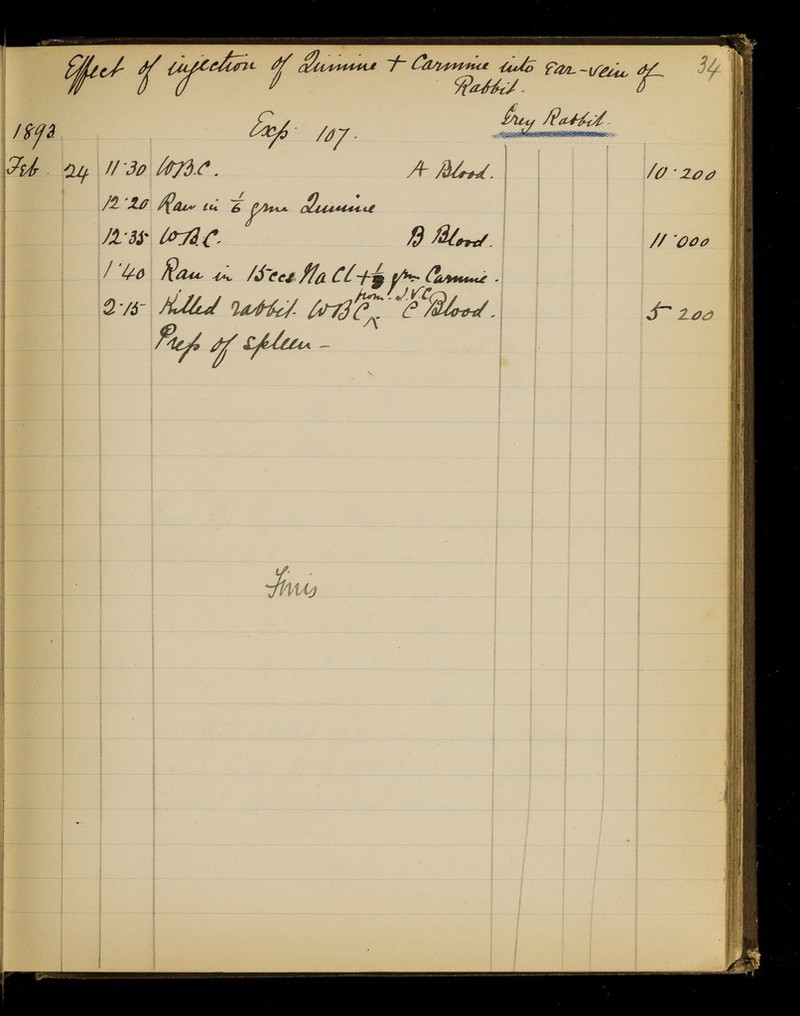 Effect of injection of Quinine + Carmine into Ear-vein of 34
Rabbit.
1893 Exp. 107. Grey Rabbit.
Feb. 24 11·30 W.B.C. A Blood. 10·200
12·20 Ran in 1/6 grm Quinine
12·35 W.B.C. B Blood. 11·000
1·40 Ran in 15ccs NaCl + grm Carmine.
from I.V.C.
2·15 Killed rabbit. WBC C Blood. 5 200
Prep of spleen –
Finis